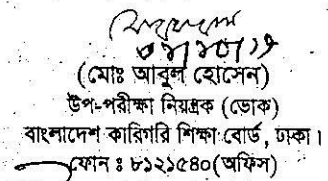 (মোঃ আবুল হোসেন)
উপ-পরীক্ষা নিয়ন্ত্রক (ভোক)
বাংলাদেশ কারিগরি শিক্ষা বোর্ড, ঢাকা।
ফোন ঃ ৮১২১৫৪০(অফিস)